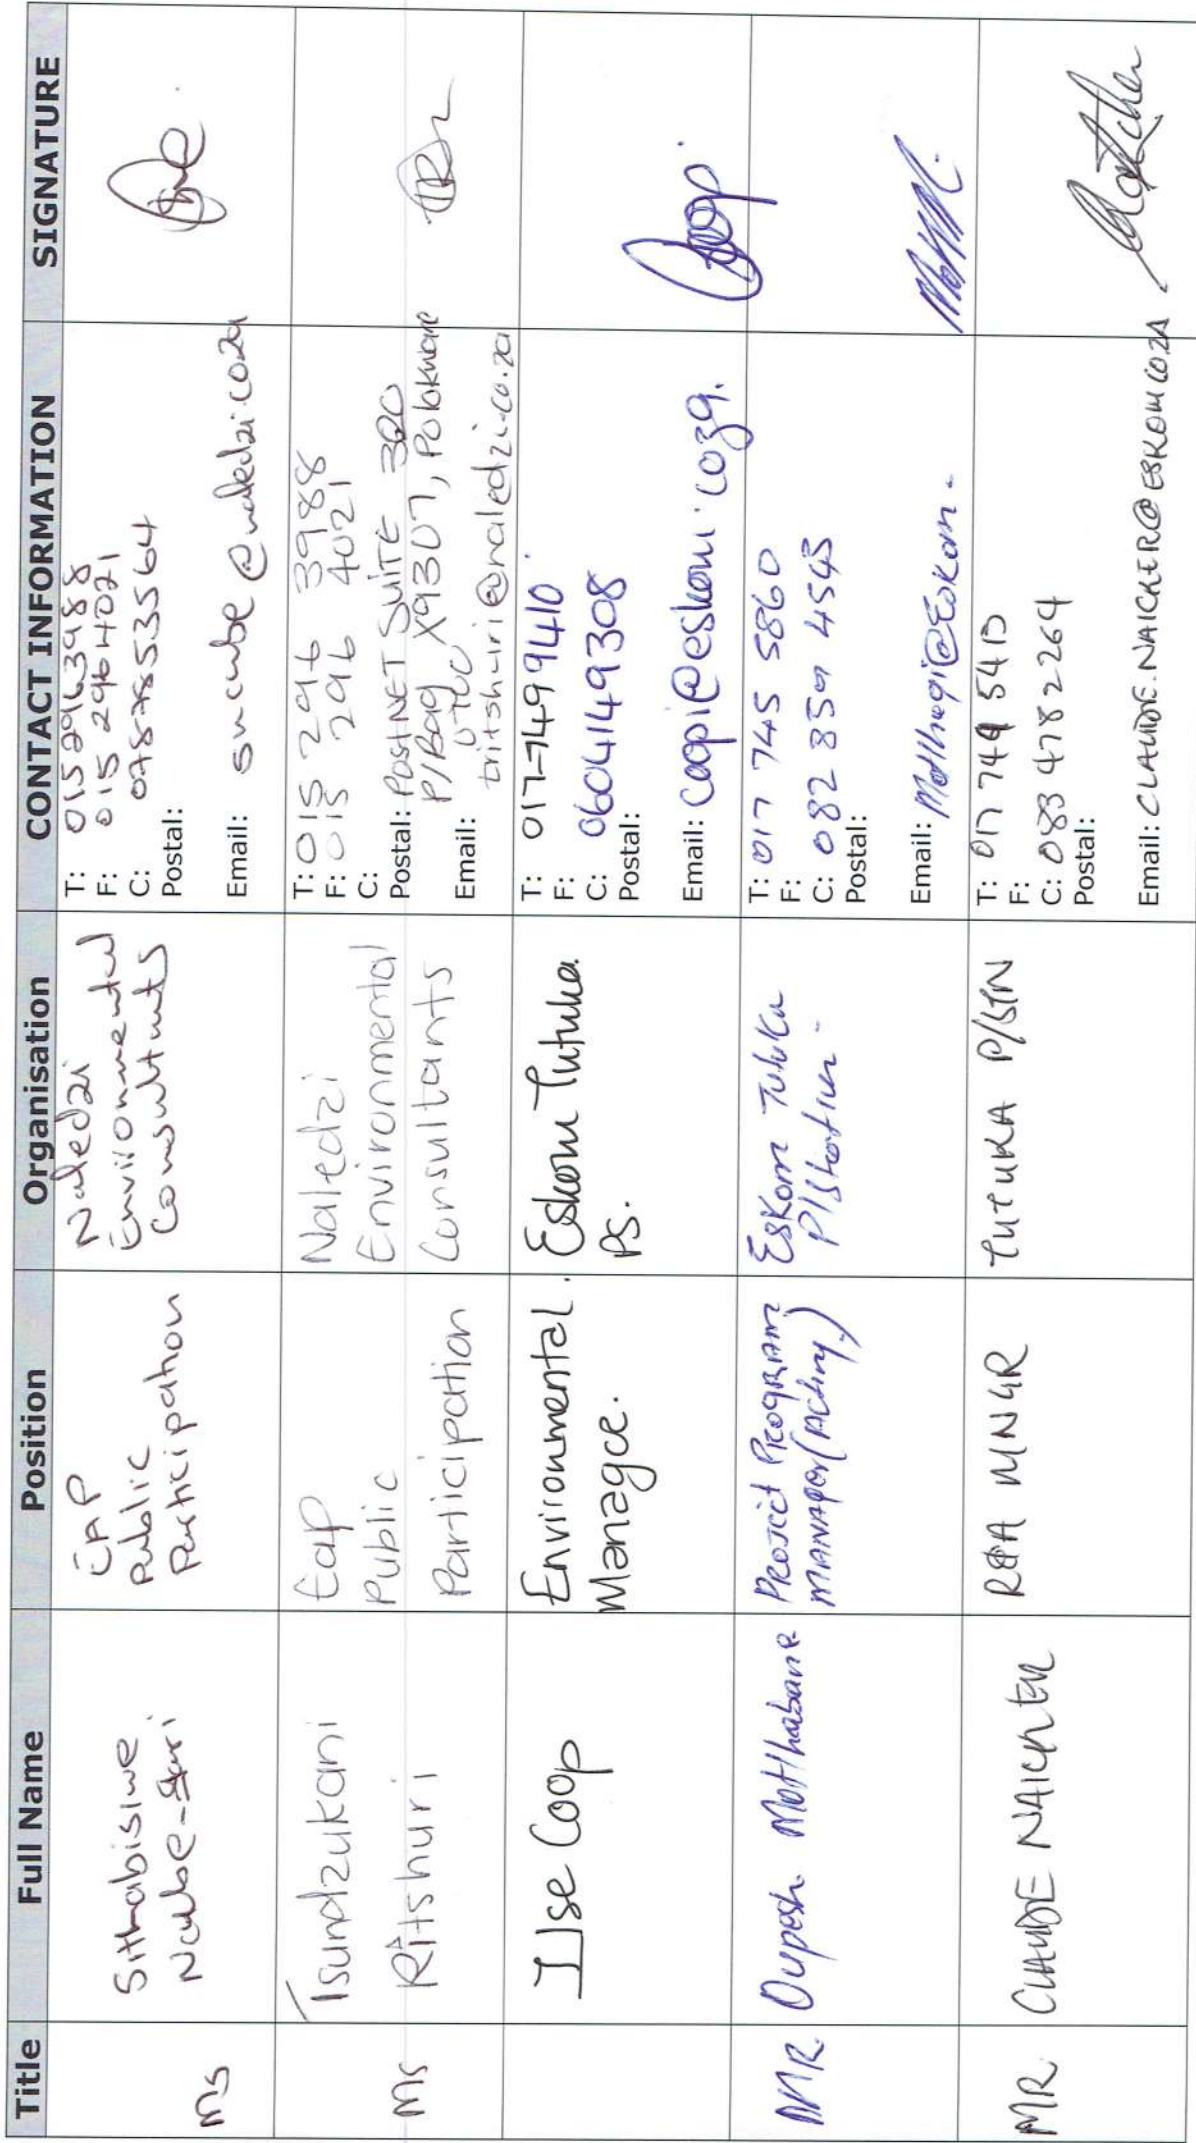 Title Full Name Position Organisation CONTACT INFORMATION SIGNATURE
Ms
Sithabisiwe
Ncube-
EAP
Public
Participation
Naledzi
Environmental
Consultants
T: 015 296 3988
F: 015 296 4021
C: 0787553564
Postal:
Email: sncube@naledzi.co.za
Ms
Tsundzukani
Ritshuri
Eap
Public
Participation
Naledzi
Environmental
Consultants
T: 015 296 3988
F: 015 296 4021
C:
Postal: PostNET SUITE 320
P/Bag X9307, Polokwane
0700
Email: tritshuri@naledzi.co.za
Ilse Coop
Environmental.
Manager.
Eskom Tutuka
PS.
T: 017-749 9410
F:
C: 0604149308
Postal:
Email: Coopi@eskom.co.za.
MR.
Oupesh Motlhabane
Project Program
Manager (Acting)
Eskom Tutuka
P/Station-
T: 017 745 5860
F:
C: 082 859 4543
Postal:
Email: @Eskom-
MR
CLAUDE NAICKER
MNGR
TUTUKA P/STN
T: 017 749 5410
F:
C: 083 478 2264
Postal:
Email: CLAUDE.NAICKER@ESKOM.CO.ZA.